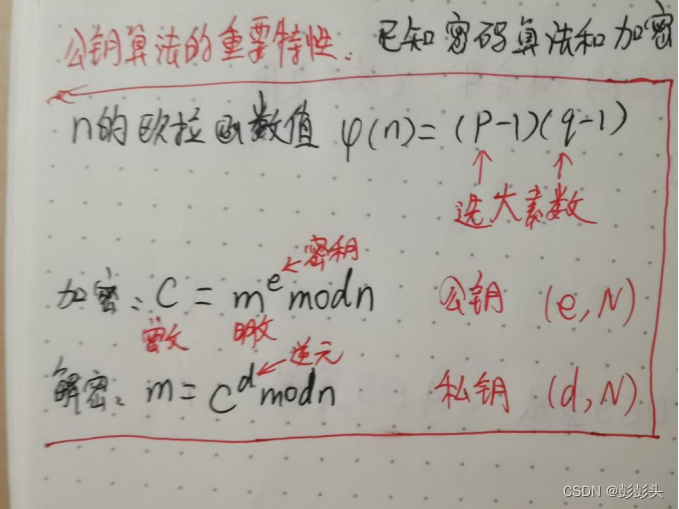 公钥算法的重要特性:已知密码算法和加密
n的欧拉函数值 φ(n)=(p-1)(q-1)
选大素数
密钥
加密:C=m^e mod n 公钥 (e,N)
密文 明文
逆元
解密:m=C^d mod n 私钥 (d,N)
CSDN @彭彭头